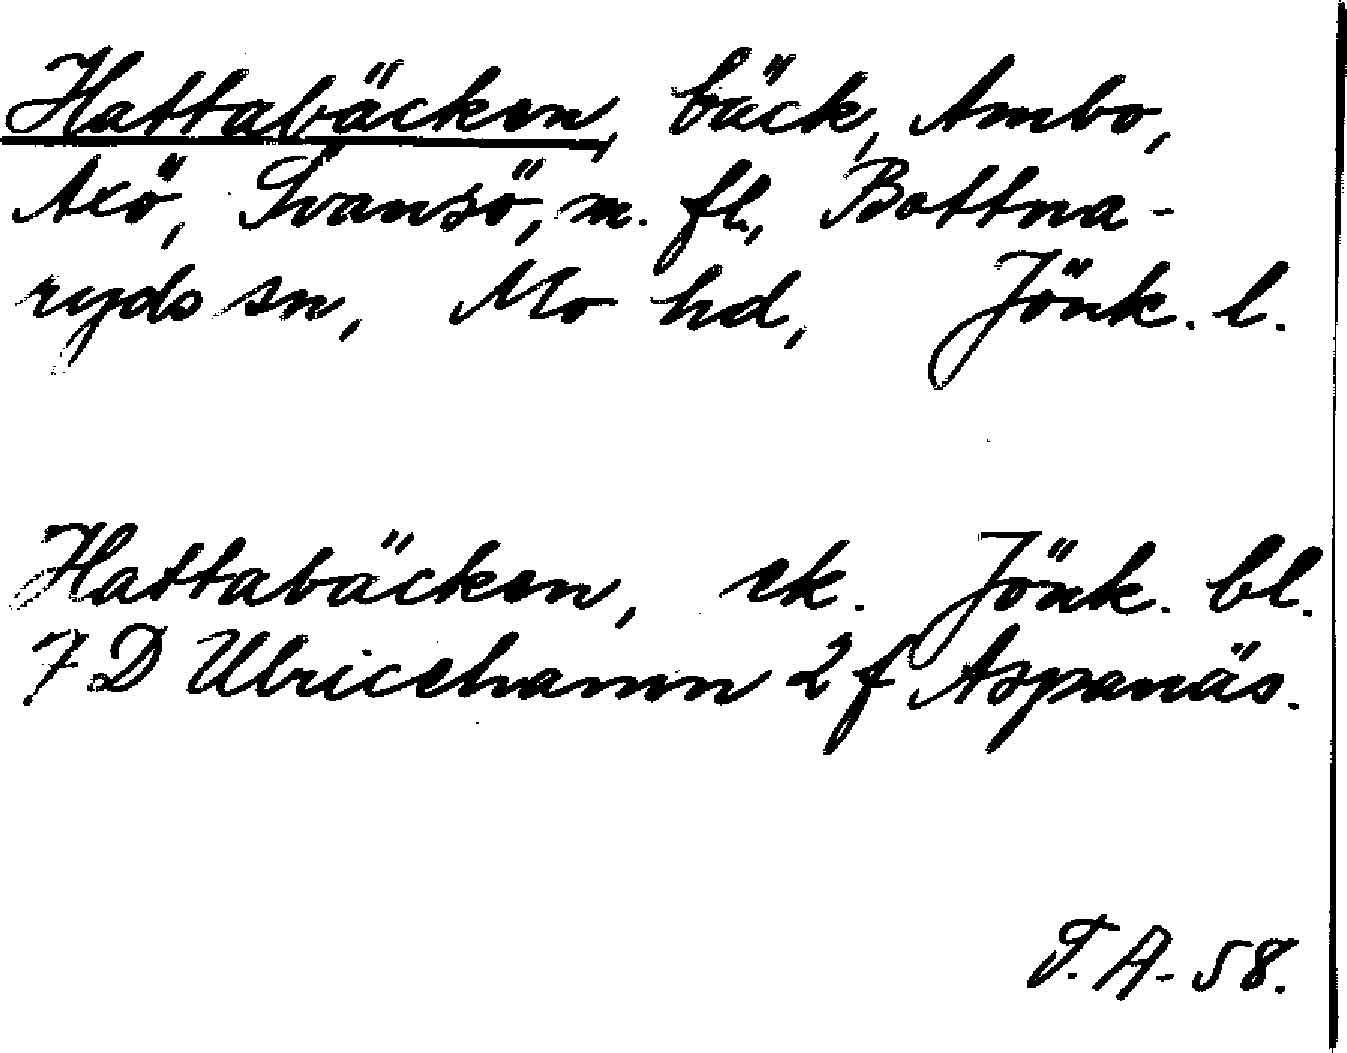 Hattabäcken, bäck, Ambo,
Axö, Svansö, m. fl., Bottna-
ryds sn, Mo hd, Jönk. l.
Hattabäcken, ek. Jönk. bl.
7 D Ulricehamn 2 f Aspanäs.
T. A. 58.